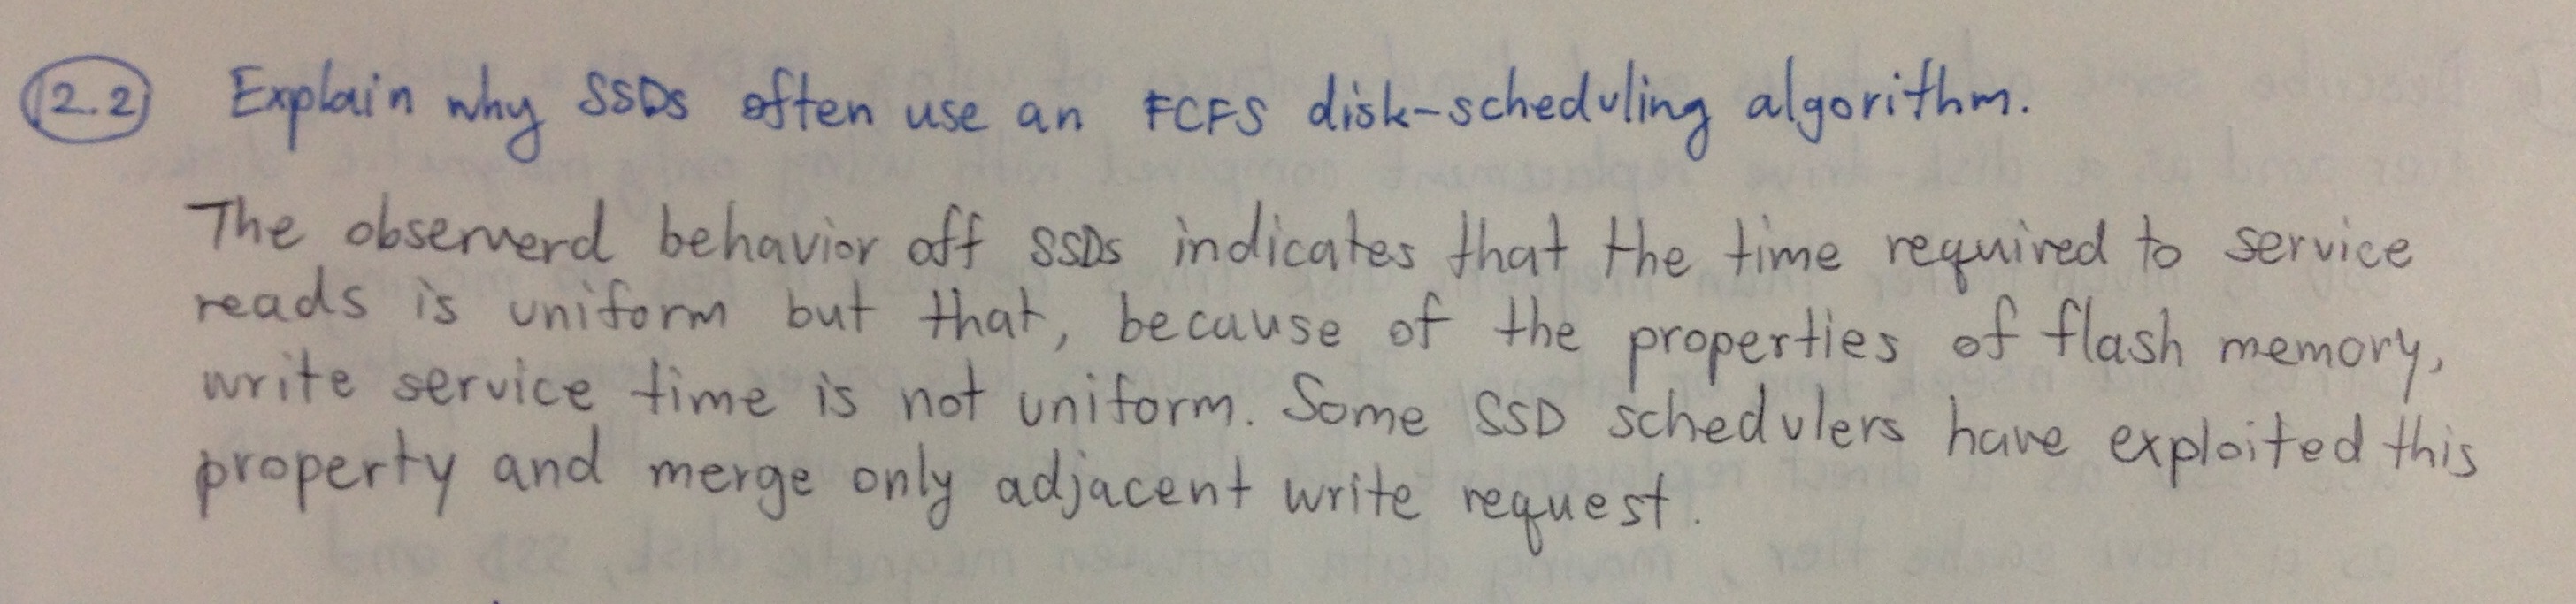 12.2 Explain why SSDs often use an FCFS disk-scheduling algorithm.
The observerd behavior off SSDs indicates that the time required to service
reads is uniform but that, because of the properties of flash memory,
write service time is not uniform. Some SSD schedulers have exploited this
property and merge only adjacent write request.